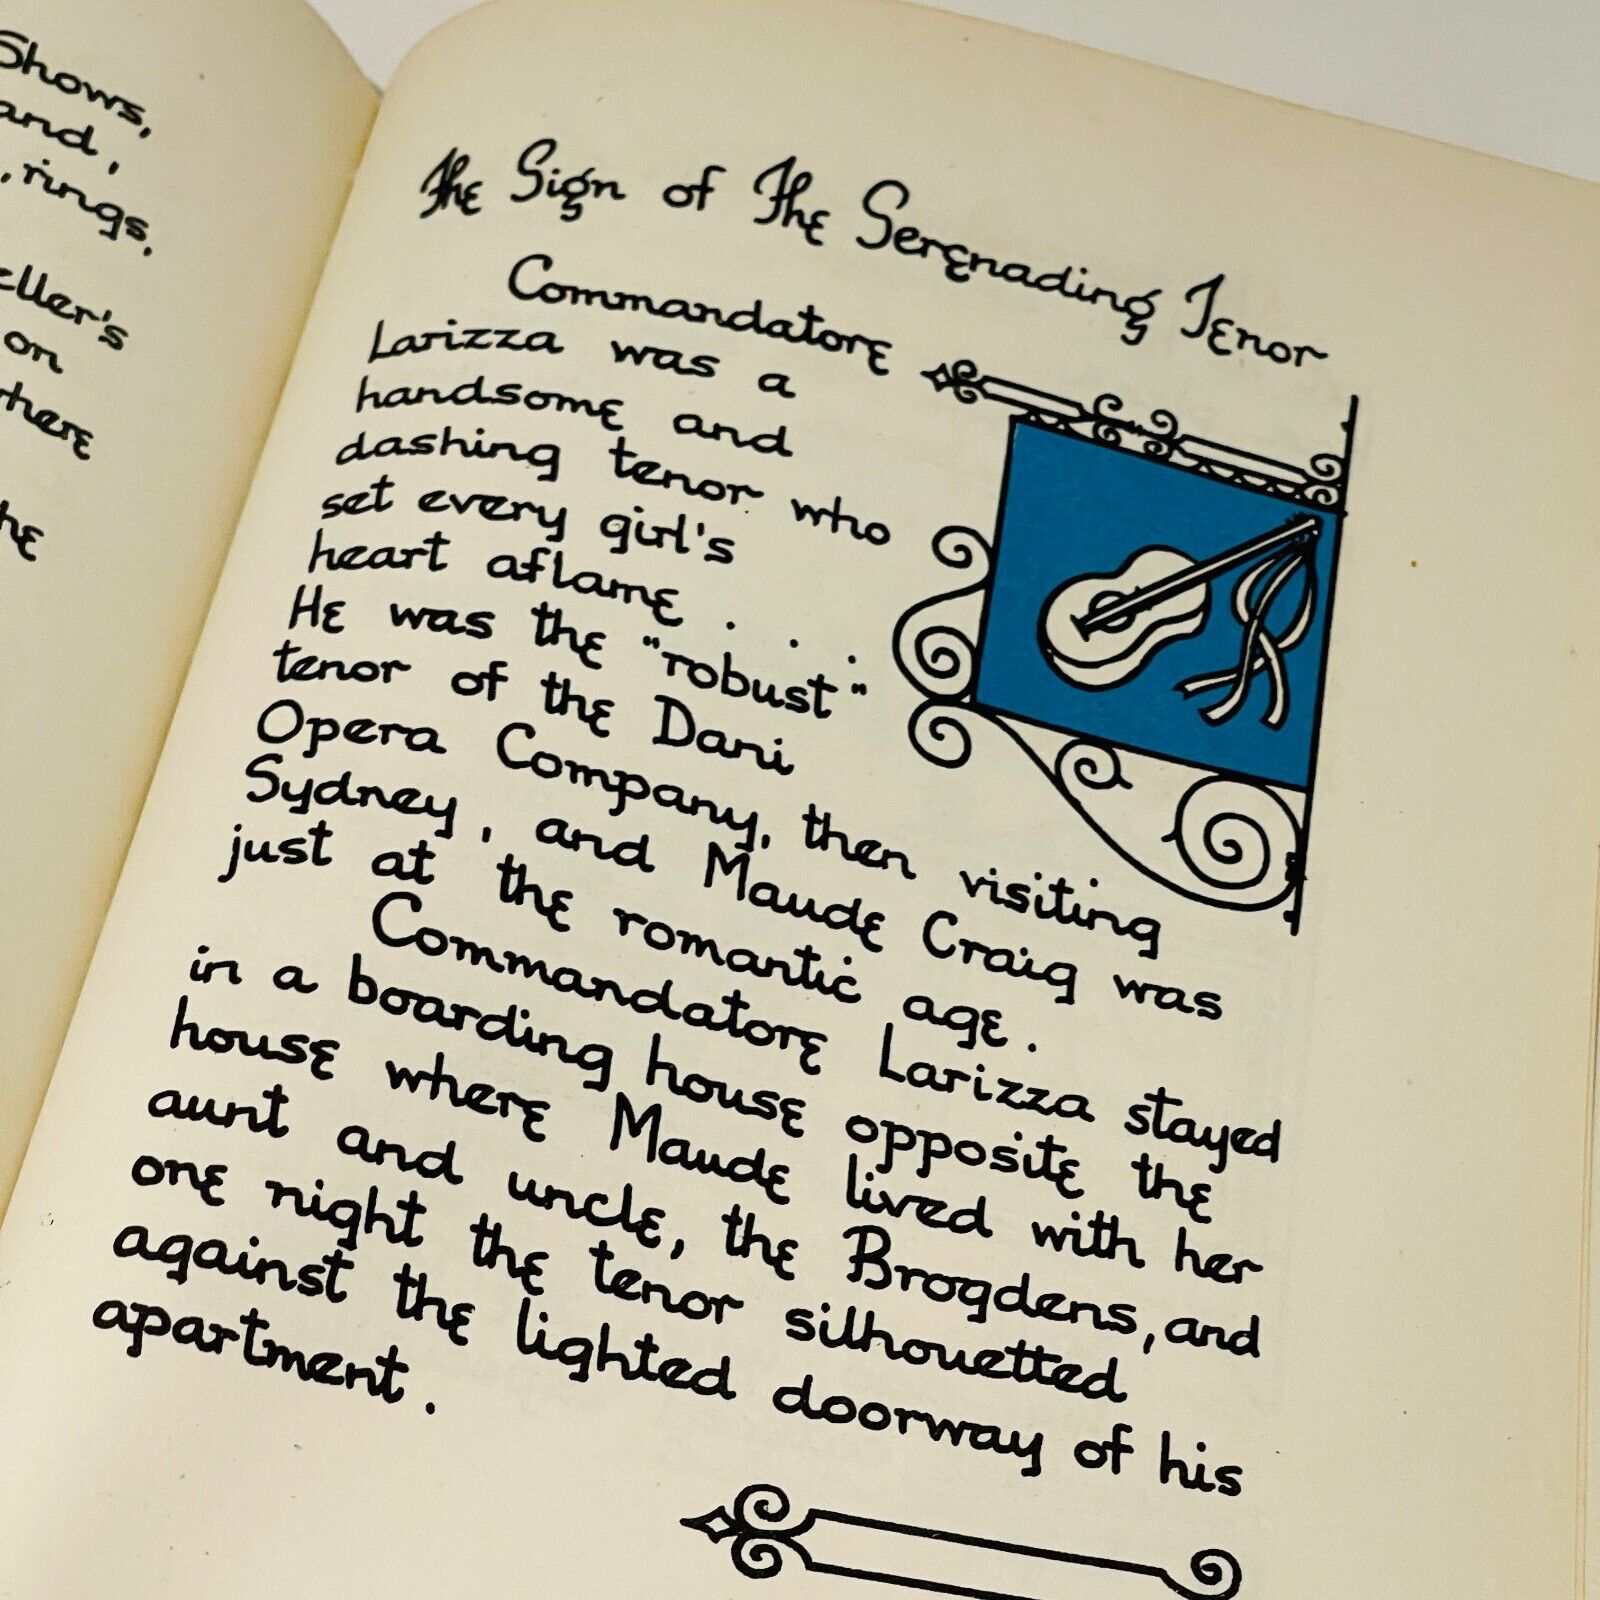 Shows,
and,
, rings,
eller's
on
where
he
The Sign of The Serenading Tenor
Commandatore
Larizza was a
handsome and
dashing tenor who
set every girl's
heart aflame . . .
He was the "robust"
tenor of the Dani
Opera Company, then visiting
Sydney, and Maude Craig was
just at the romantic age.
Commandatore Larizza stayed
in a boarding house opposite the
house where Maude lived with her
aunt and uncle, the Brogdens, and
one night the tenor silhouetted
against the lighted doorway of his
apartment.